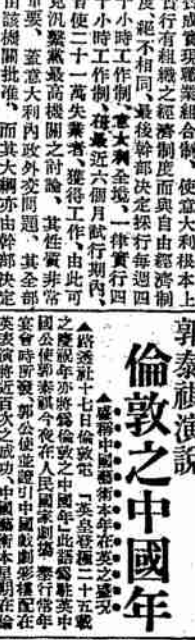 度絕不相同、最後幹部決定採行每週四
十小時工作制、意大利全境、一律實行四
十小時工作制、在最近六個月試行期內、
曾使二十一萬失業者、獲得工作、由此可
見汎繫黨最高機關之討論、其性質非常
重要、蓋意大利內政外交問題、其全部
由該機關批准、而其大綱亦由幹部決定
郭泰祺演說
倫敦之中國年
▲盛稱中國藝術本年在英之盛況
▲路透社十七日倫敦電 「英皇登極二十五載
之慶祝年亦將為倫敦之中國年」此語為駐英中
國公使郭泰祺今夜在人民國家劇場舉行常年
宴會時所發、郭公使並證引中國戲劇彩樓配在
英表演將近百次之成功、中國藝術本星期在倫